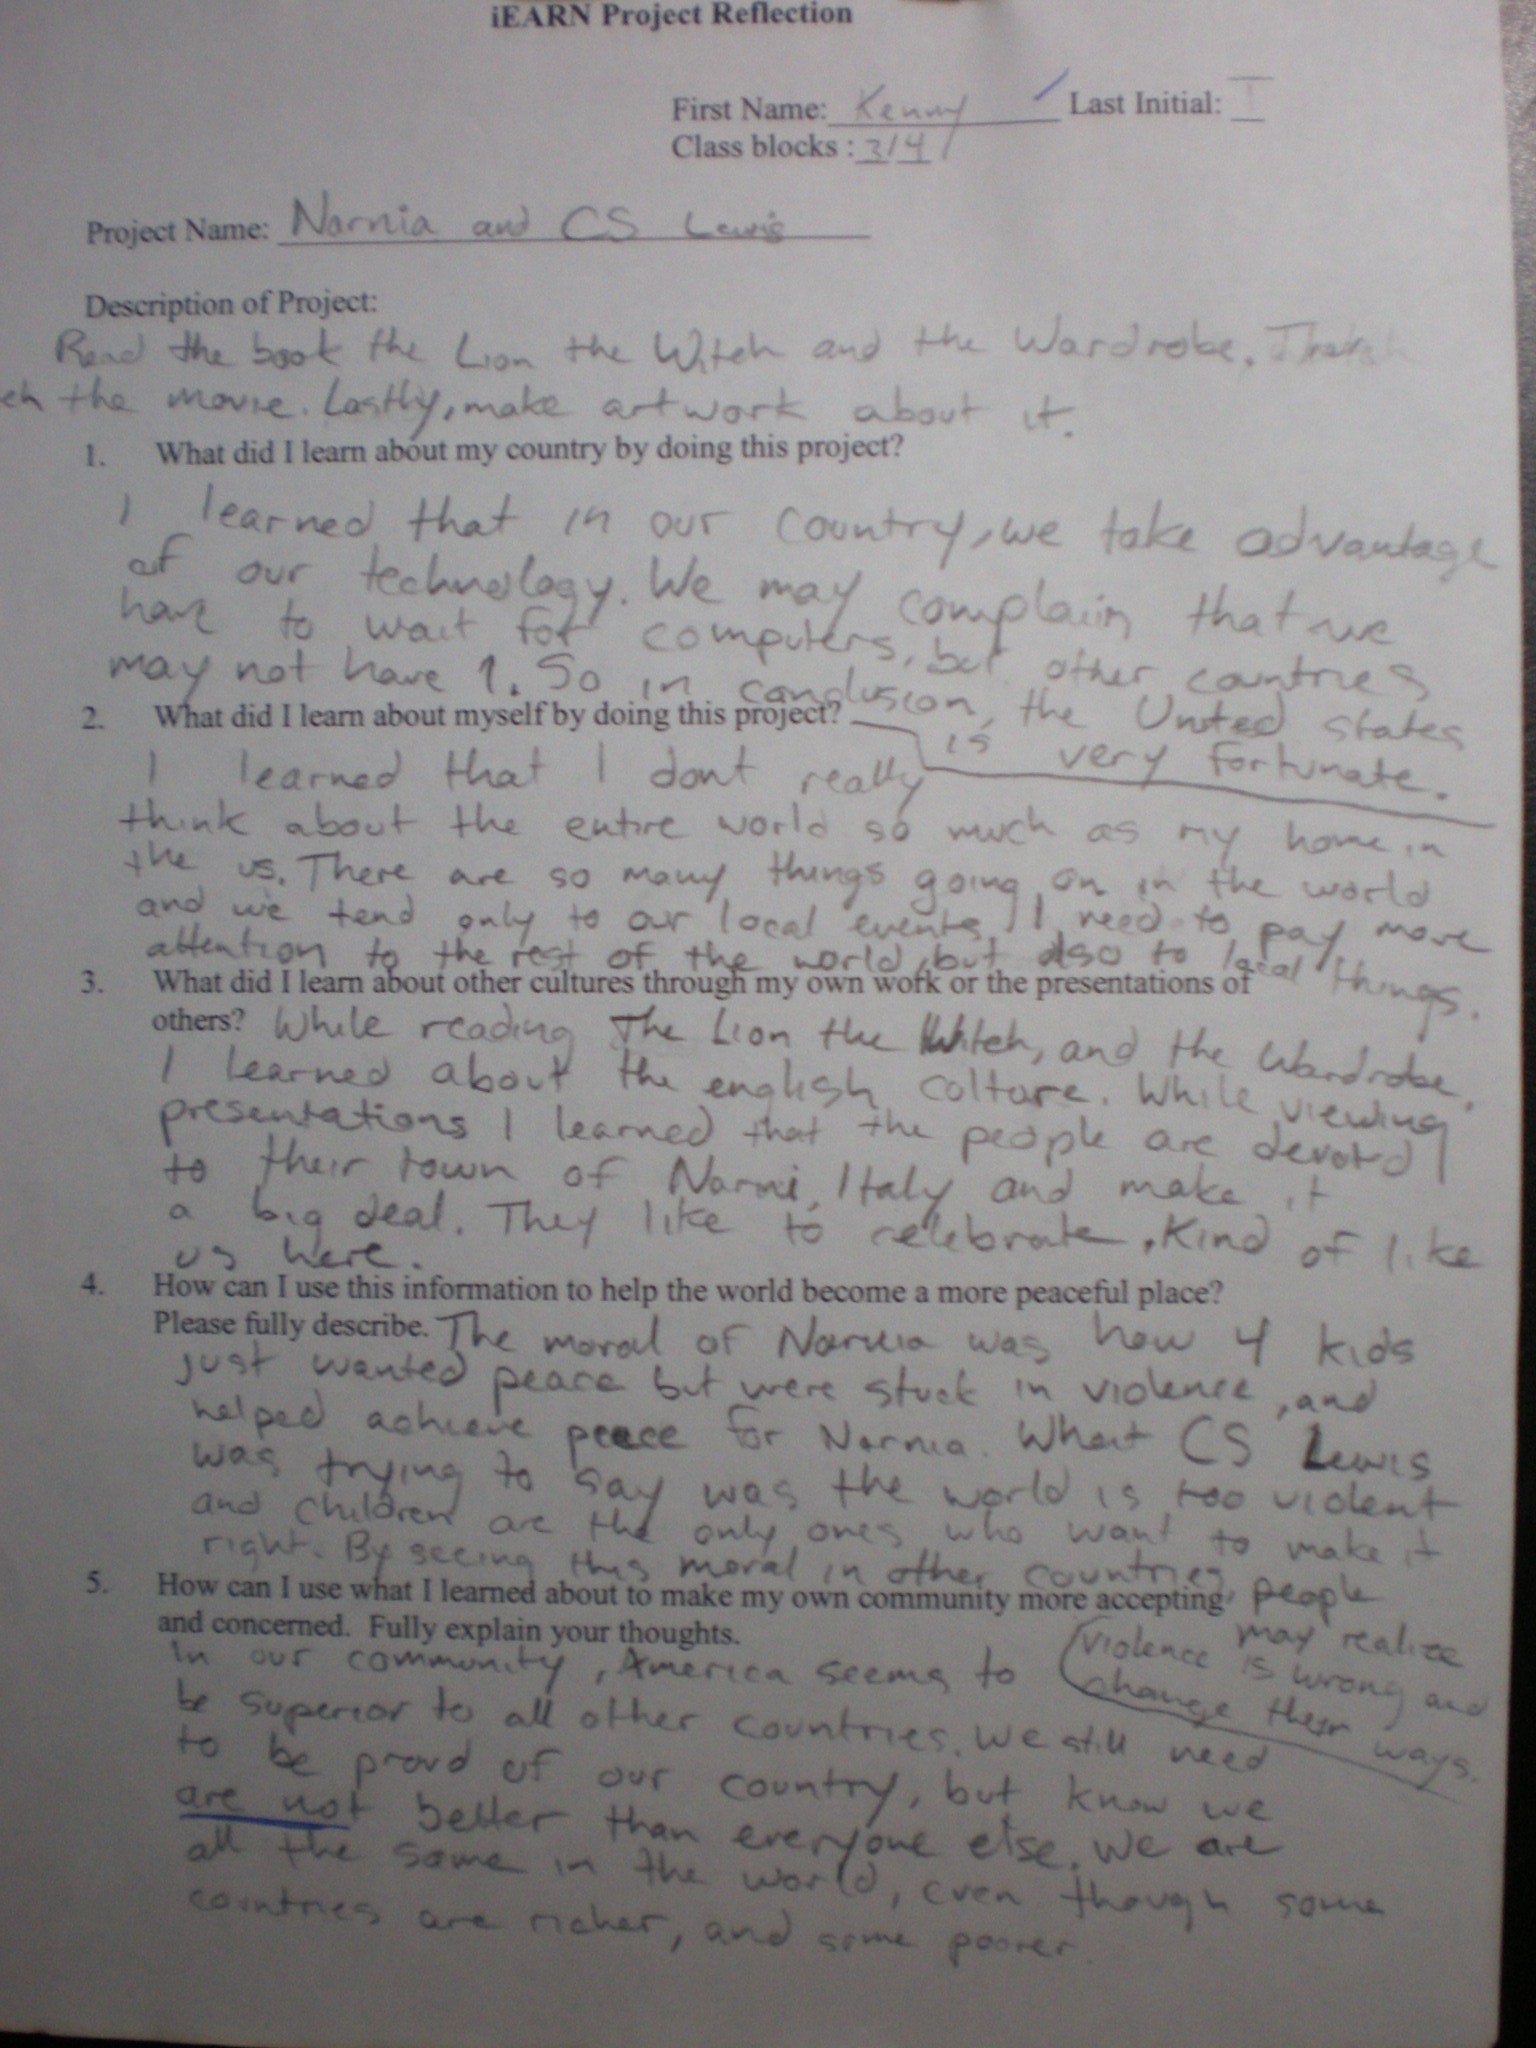 iEARN Project Reflection
First Name: Kenny Last Initial: I
Class blocks : 3/4
Project Name: Narnia and CS Lewis
Description of Project:
Read the book the Lion the Witch and the Wardrobe.
the movie. Lastly, make artwork about it.
1. What did I learn about my country by doing this project?
I learned that in our country, we take advantage
of our technology. We may complain that we
have to wait for computers, but other countries
may not have 1. So in conclusion, the United states
is very fortunate.
2. What did I learn about myself by doing this project?
I learned that I dont really
think about the entire world so much as my home in
the us. There are so many things going on in the world
and we tend only to our local events. I need to pay more
attention to the rest of the world, but also to local things.
3. What did I learn about other cultures through my own work or the presentations of
others? While reading The Lion the Witch, and the Wardrobe,
I learned about the english colture. While viewing
presentations I learned that the people are devoted
to their town of Narni, Italy and make it
a big deal. They like to celebrate. Kind of like
us here.
4. How can I use this information to help the world become a more peaceful place?
Please fully describe. The moral of Narnia was how 4 kids
just wanted peace but were stuck in violence, and
helped achieve peece for Narnia. What CS Lewis
was trying to say was the world is too violent
and children are the only ones who want to make it
right. By seeing this moral in other countries, people
may realize
violence is wrong and
change their ways.
5. How can I use what I learned about to make my own community more accepting
and concerned. Fully explain your thoughts.
In our community, America seems to
be superior to all other countries. We still need
to be proud of our country, but know we
are not better than everyone else. We are
all the same in the world, even though some
countries are richer, and some poorer